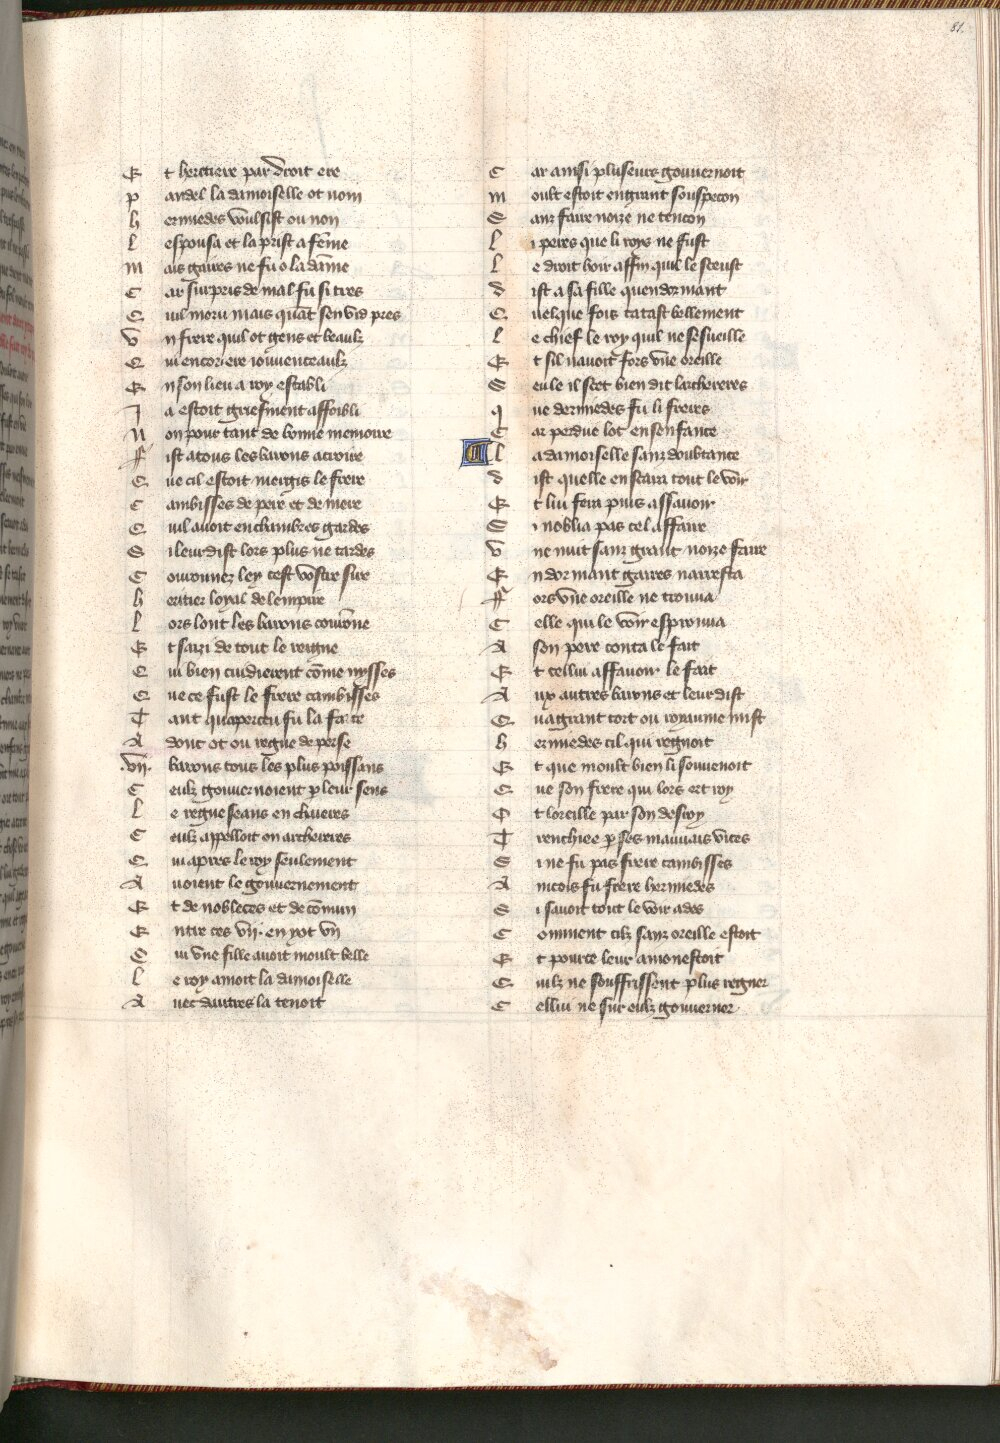 81.
Et heritiere par droit ere
pandel la damoiselle ot nom
hermedes voulsist ou non
lespousa et la prist a fẽme
mais gaires ne fu o la dãme
Car surpris de mal fu si tres
Quil moru mais quãt sen vid pres
Un frere quil ot gens et beaulz
Qui encor iere iouuenceaulz
En son lieu a roy establi
Ja estoit griefment affoibli
Non pour tant de bonne memoire
Fist a tous les barons acroire
Que cil estoit mergis le frere
Cambisses de pere et de mere
Quil auoit en chambres gardes
Si leur dist lors plus ne tardes
Couronnez ley cest vostre sire
heritier loyal de lempire
lors lont les barons courõne
Et saizi de tout le reigne
Qui bien cuidierent cõme nysses
Que ce fust le frere cambisses
Tant quaperceu fu la faitte
Adont ot ou regne de perse
.vii. barons tous les plus poissans
Ceulz gouuernoient p leur sens
Le regne seans en chaieres
Ceulz appelloit on archereres
Qui apres le roy seulement
Auoient le gouuernement
Et de nobleces et de cõmun
Entre ces vii. en yot vn
Qui vne fille auoit moult belle
Le roy amoit la damoiselle
Auec dautres la tenoit
Car ainsi pluseurs gouuernoit
moult estoit en grant souspecon
Sanz faire noize ne tencon
li peres que li roys ne fust
Le droit hoir affin quil le sceust
dist a sa fille quen dormant
Quelque fois tatast bellement
le chief le roy quil ne sesueille
Et sil nauoit fors vne oreille
Seule il scet bien dit larchereres
que dermedes fu li freres
Car perdue lot en senfance
La damoiselle sanz doubtance
dist quelle en scara tout le voir
Et lui fera puis assauoir
Si noblia pas cel affaire
vne nuit sanz grant noize faire
En dormant gaires narresta
Fors vne oreille ne trouua
Celle qui le voir esprouua
A son pere conta le fait
Et cellui assauoir le fait
Aux autres barons et leur dist
Qua grant tort ou royaume mist
hermedes cil qui regnoit
Et que moult bien li souuenoit
Que son frere qui lors ert roy
Ot loreille par son desroy
Trenchiee p ses mauuais vices
Si ne fu pas frere cambisses
Aincois fu frere hermedes
Si sauoit tout le voir ades
Comment cilz sanz oreille estoit
Et pource leur amonestoit
Quilz ne souffrissent plus regner
Cellui ne sur eulz gouuerner